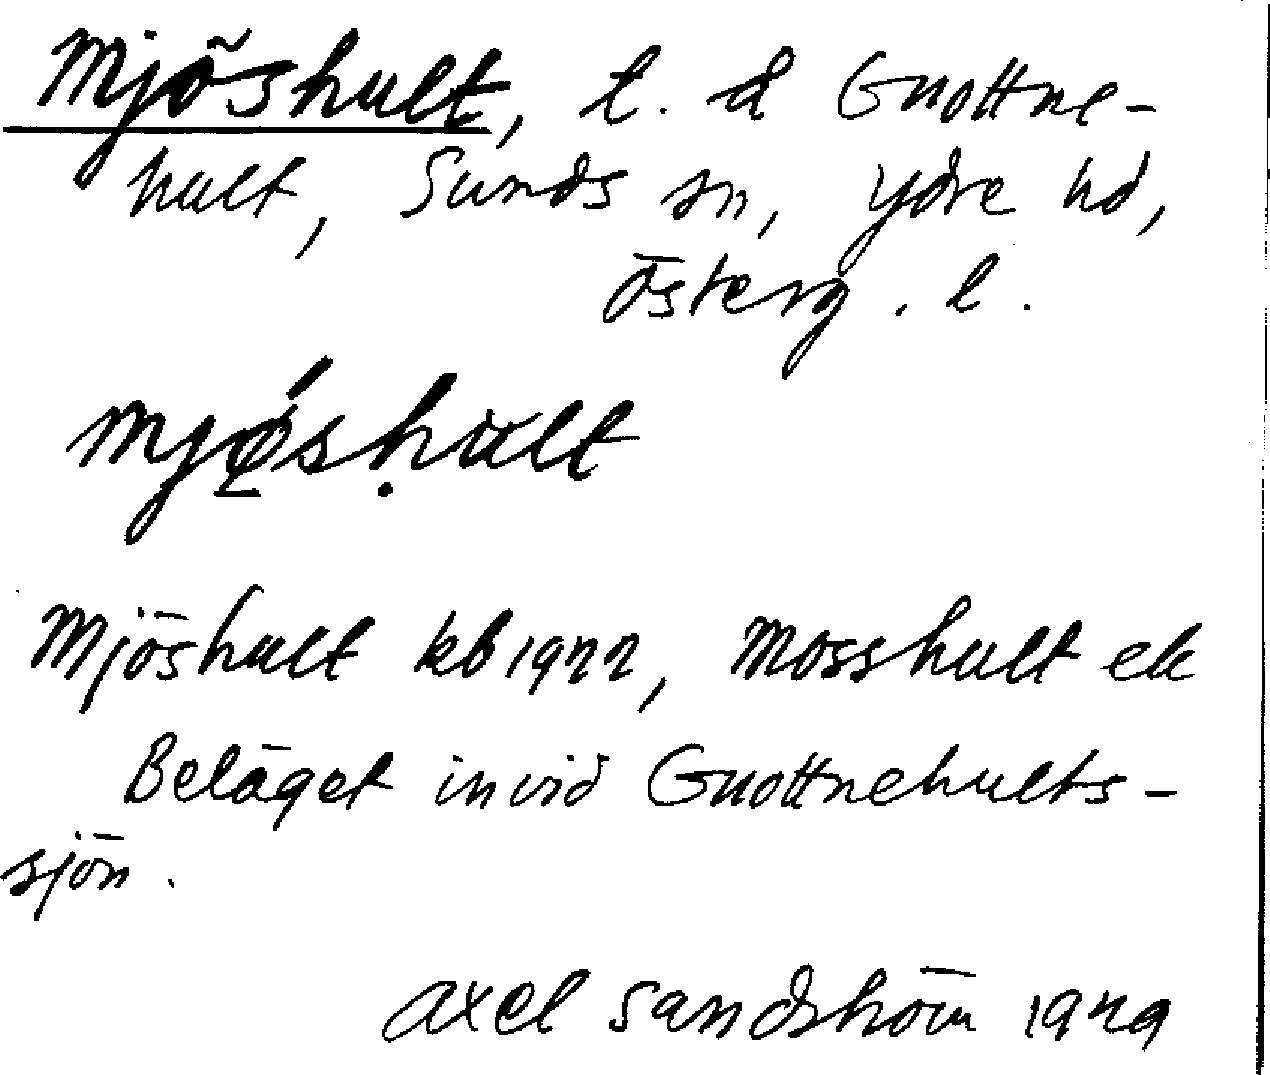 Mjöshult, l. å Gnottne-
hult, Sunds sn, Ydre hd,
Österg. l.
mjǿ̱sḥult
Mjöshult kb 1922, Mosshult ek
Beläget invid Gnottnehults-
sjön.
Axel Sandström 1929